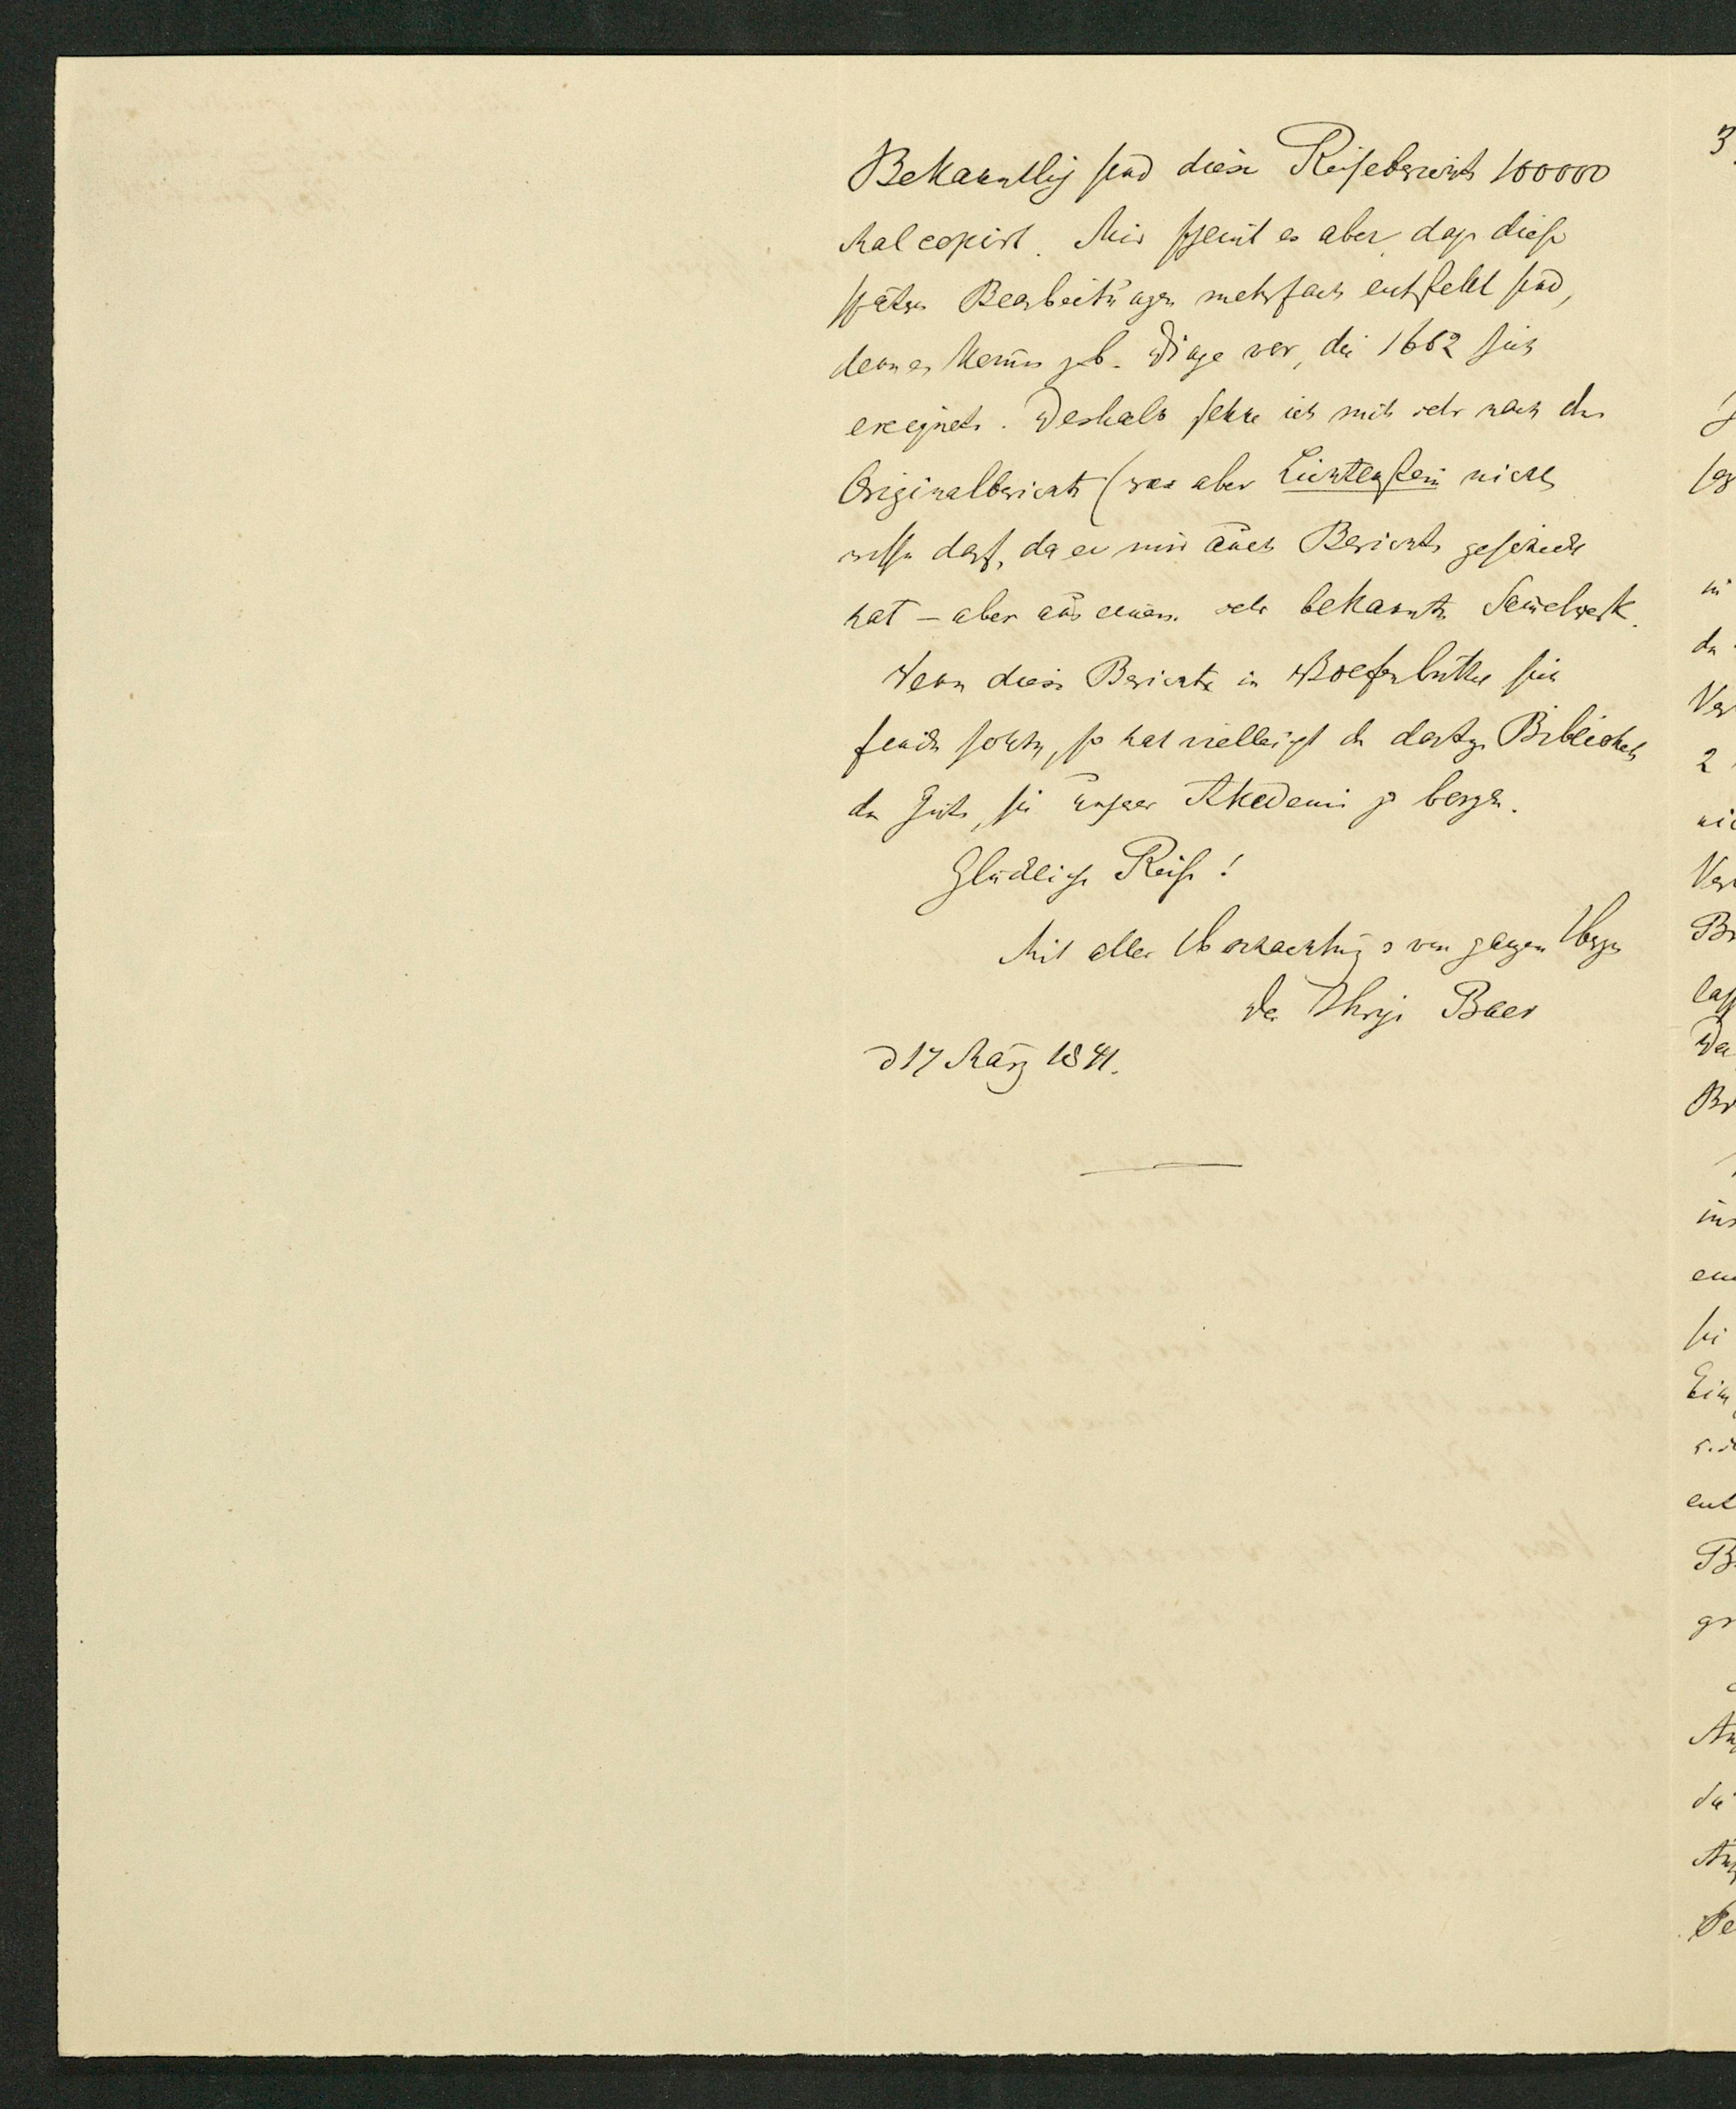 Bekanntlich sind diese Reiseberichte 100000
Mal copirt. Mir scheint es aber, dass diese
späteren Bearbeitungen mehrfach entstellt sind,
denn es kommen z. B. Dinge vor, die 1662 sich
ereigneten. Deshalb sehne ich mich sehr nach den
Originalberichten (was aber Lichtenstein nicht
wissen darf, da er mir auch Berichte geschickt
hat – aber aus einem sehr bekannten Sam̄elwerk.
Wenn diese Berichte in Wolfenbüttel sich
finden sollten, so hat vielleicht der dortige Bibliothek
die Güte, sie unserer Akademie zu borgen.
Glückliche Reise!
Mit aller Hochachtung u von ganzem Herzen
Der Ihrige Baer
d 17 März 1841.
3
in
2
Br
ein
ent
gr